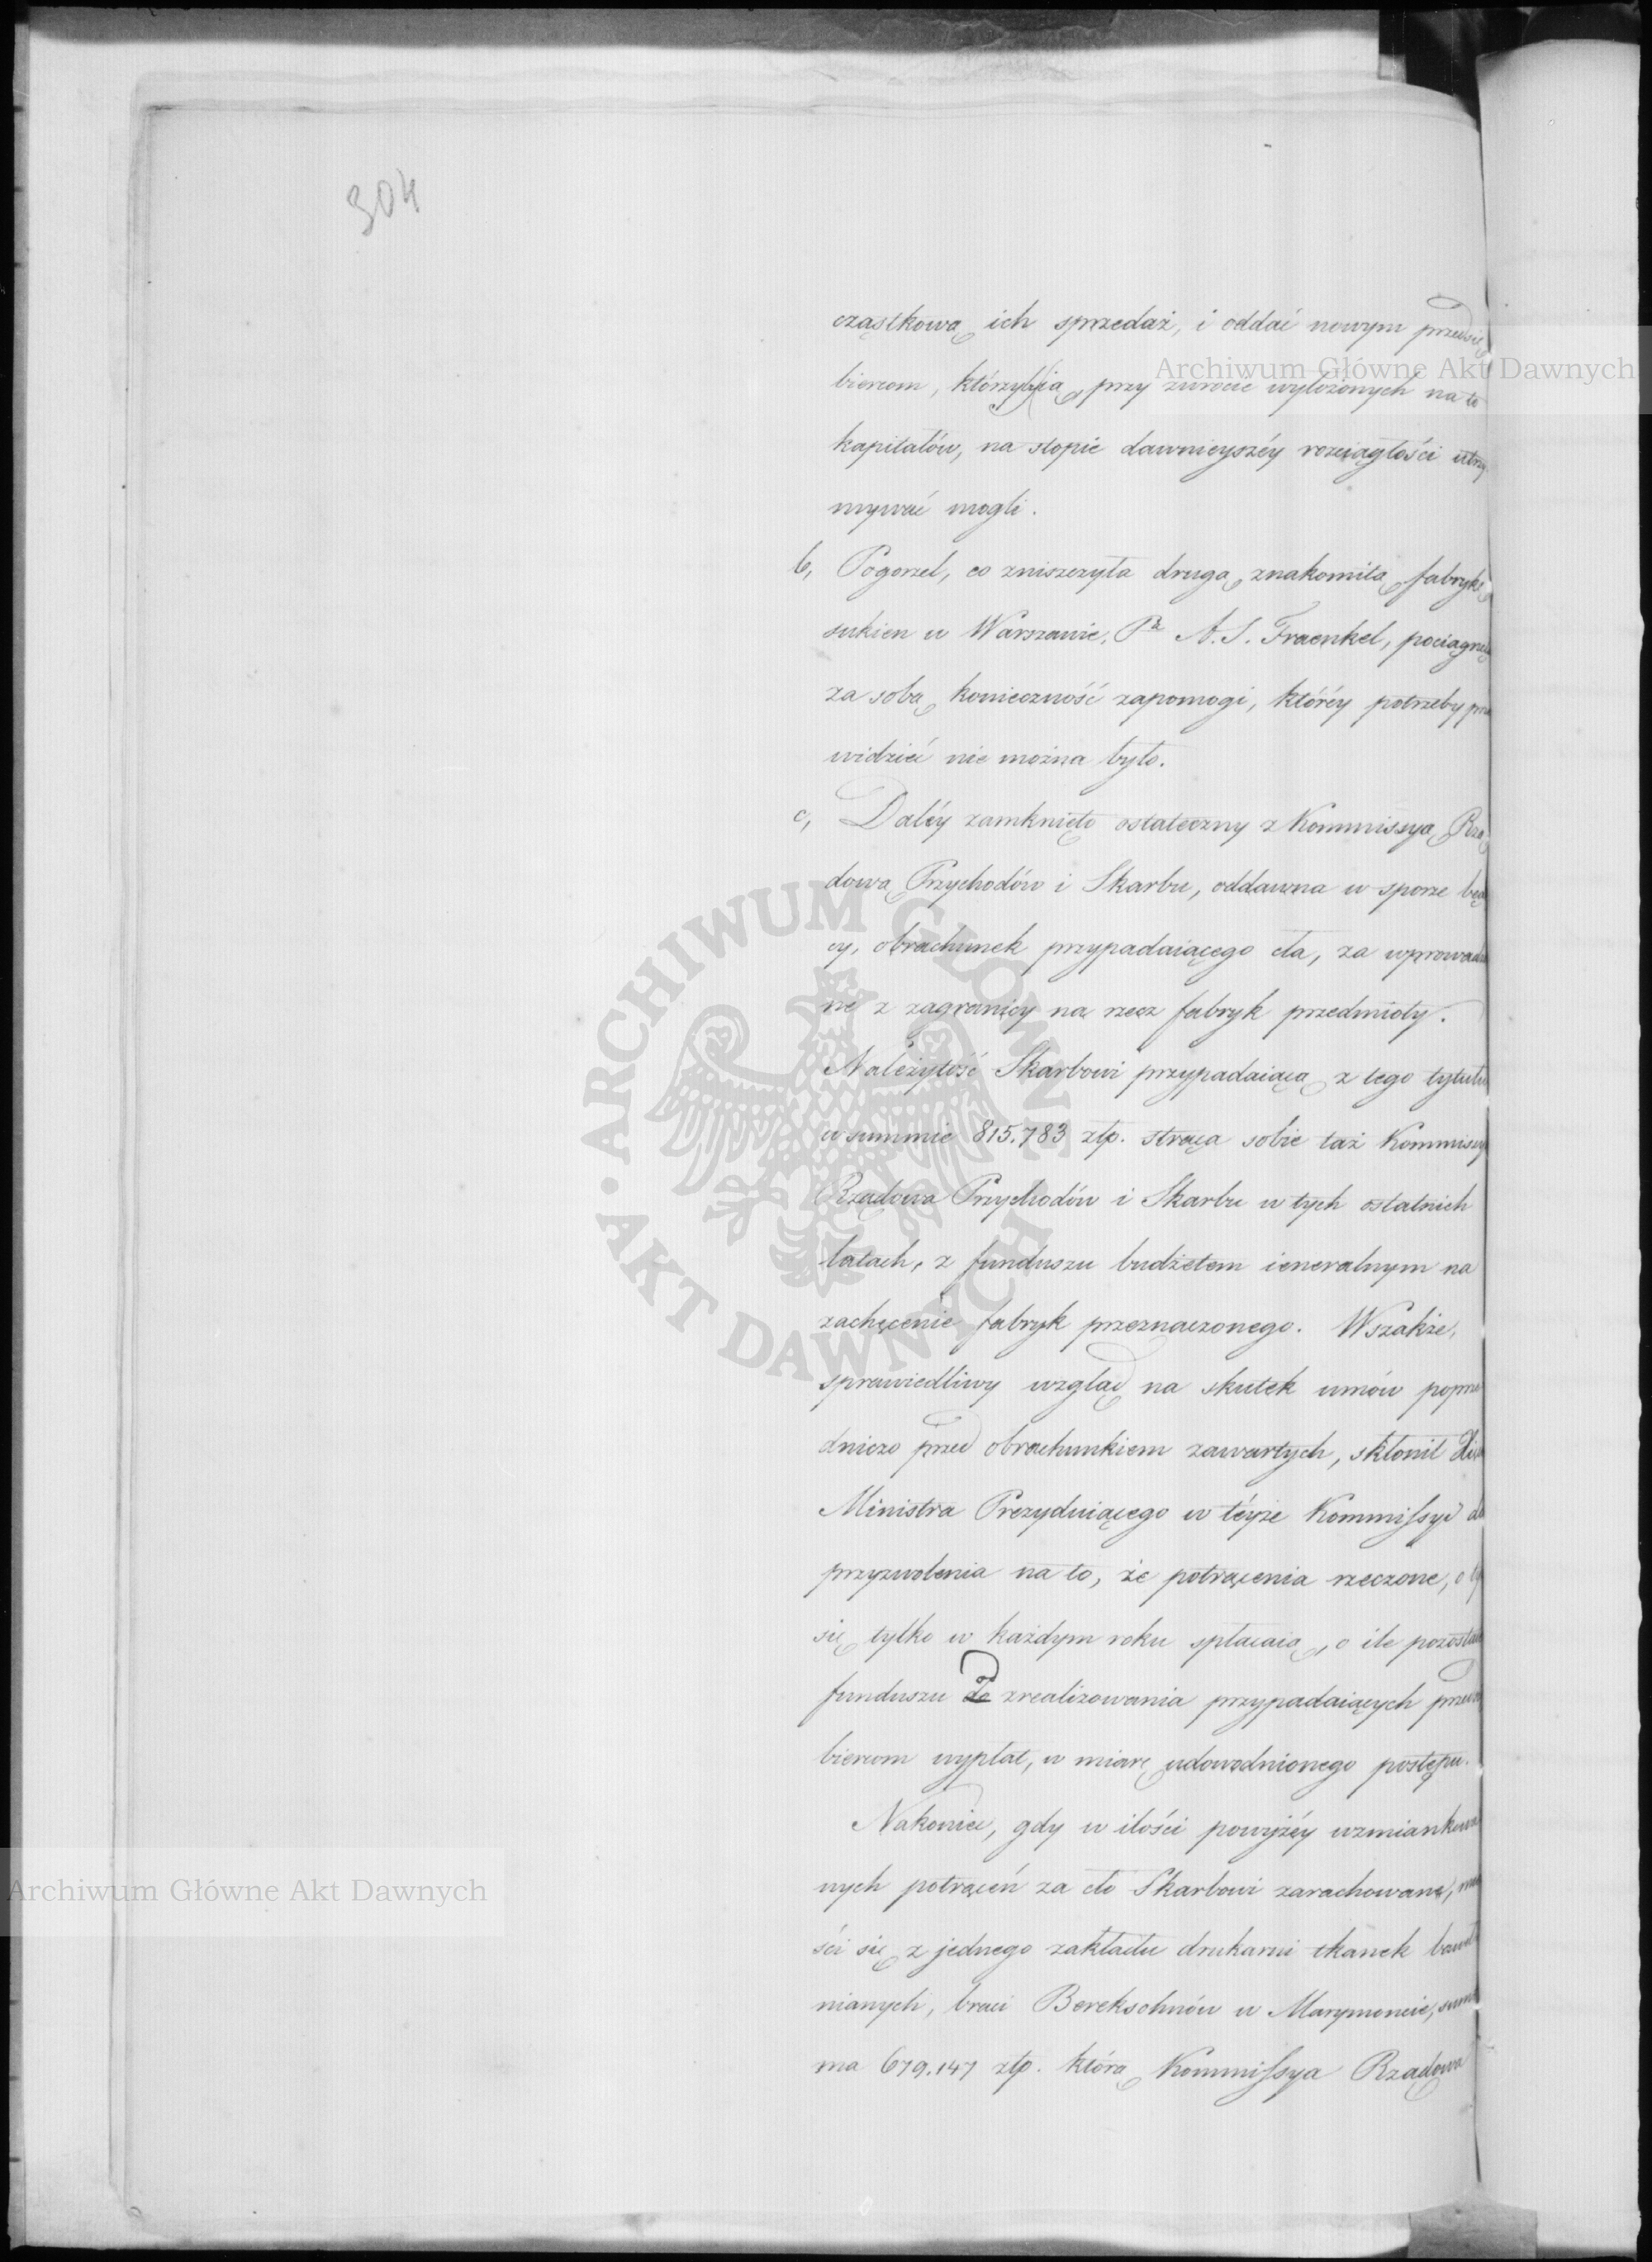 304
cząstkową ich sprzedaż, i oddać nowym przedsię
biercom, którzyby ią, przy zwrocie wyłożonych na to
kapitałów, na stopie dawnieyszéy rozciągłości utrzy
mywać mogli.
b, Pogorzel, co zniszczyła drugą znakomitą fabrykę
sukien w Warszawie, Pa A. S. Fraenkel, pociągnęła
za sobą konieczność zapomogi, któréy potrzeby prze
widzieć nie można było.
c, Daléy zamknięto ostateczny z Kommissyą Rzą
dową Przychodów i Skarbu, oddawna w sporze będą
cy, obrachunek przypadaiącego cła, za wprowadzo
ne z zagranicy na rzecz fabryk przedmioty.
Należytość Skarbowi przypadaiącą z tego tytułu
w summie 815.783 złp. strąca sobie taż Kommissya
Rządowa Przychodów i Skarbu w tych ostatnich
latach, z funduszu budżetem ieneralnym na
zachęcenie fabryk przeznaczonego. Wszakże,
sprawiedliwy wzgląd na skutek umów poprze
dniczo przed obrachunkiem zawartych, skłonił
Ministra Prezyduiącego w téyże Kommissyi do
przyzwolenia na to, że potrącenia rzeczone, o ty
się tylko w każdym roku spłacaią, o ile pozostaie
funduszu do zrealizowania przypadaiących
biercom wypłat, w miarę udowodnionego postępu.
Nakoniec, gdy w ilości powyżéy wzmiankowa
nych potrąceń za cło Skarbowi zarachowane, mie
ści się z jednego zakładu drukarni tkanek baweł
nianych, braci Bereksohnów w Marymoncie, sum
ma 679.147 złp. którą Kommissya Rządowa
Archiwum Główne Akt Dawnych
Archiwum Główne Akt Dawnych
ARCHIWUM GŁÓWNE · AKT DAWNYCH